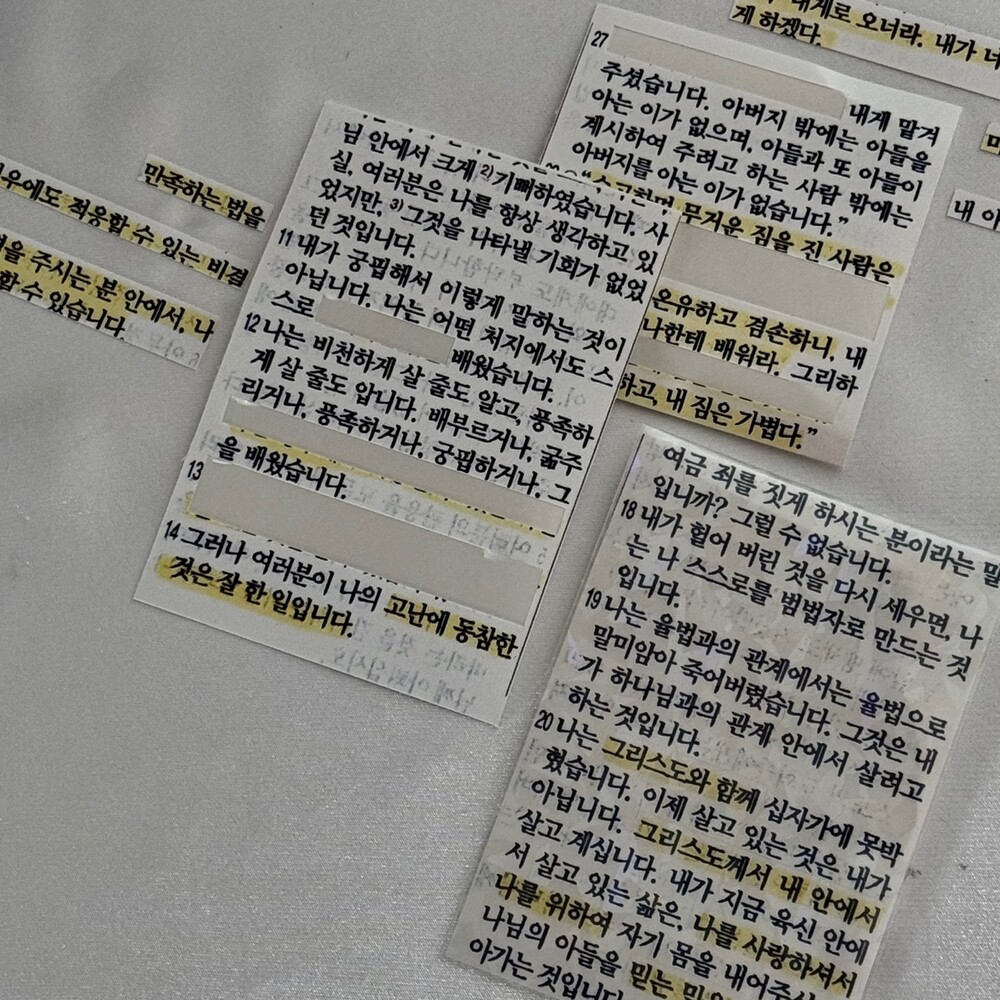 내게로 오너라. 내가 너
게 하겠다.
27
주셨습니다. 아버지 밖에는 아들을
내게 맡겨
아는 이가 없으며, 아들과 또 아들이
계시하여 주려고 하는 사람 밖에는
아버지를 아는 이가 없습니다."
무거운 짐을 진 사람은
온유하고 겸손하니, 내
나한테 배워라. 그리하
하고, 내 짐은 가볍다."
내 이
만족하는 법을
우에도 적응할 수 있는 비결
을 주시는 분 안에서, 나
할 수 있습니다.
님 안에서 크게 2)기뻐하였습니다. 사
실, 여러분은 나를 항상 생각하고 있
었지만, 3)그것을 나타낼 기회가 없었
던 것입니다.
11 내가 궁핍해서 이렇게 말하는 것이
아닙니다. 나는 어떤 처지에서도 스
스로
배웠습니다.
12 나는 비천하게 살 줄도 알고, 풍족하
게 살 줄도 압니다. 배부르거나, 굶주
리거나, 풍족하거나, 궁핍하거나, 그
을 배웠습니다.
13
14 그러나 여러분이 나의 고난에 동참한
것은 잘 한 일입니다.
여금 죄를 짓게 하시는 분이라는 말
입니까? 그럴 수 없습니다.
18 내가 헐어 버린 것을 다시 세우면, 나
는 나 스스로를 범법자로 만드는 것
입니다.
19 나는 율법과의 관계에서는 율법으로
말미암아 죽어버렸습니다. 그것은 내
가 하나님과의 관계 안에서 살려고
하는 것입니다.
20 나는 그리스도와 함께 십자가에 못박
혔습니다. 이제 살고 있는 것은 내가
아닙니다. 그리스도께서 내 안에서
살고 계십니다. 내가 지금 육신 안에
서 살고 있는 삶은, 나를 사랑하셔서
나를 위하여 자기 몸을 내어주
나님의 아들을 믿는
아가는 것입니다.